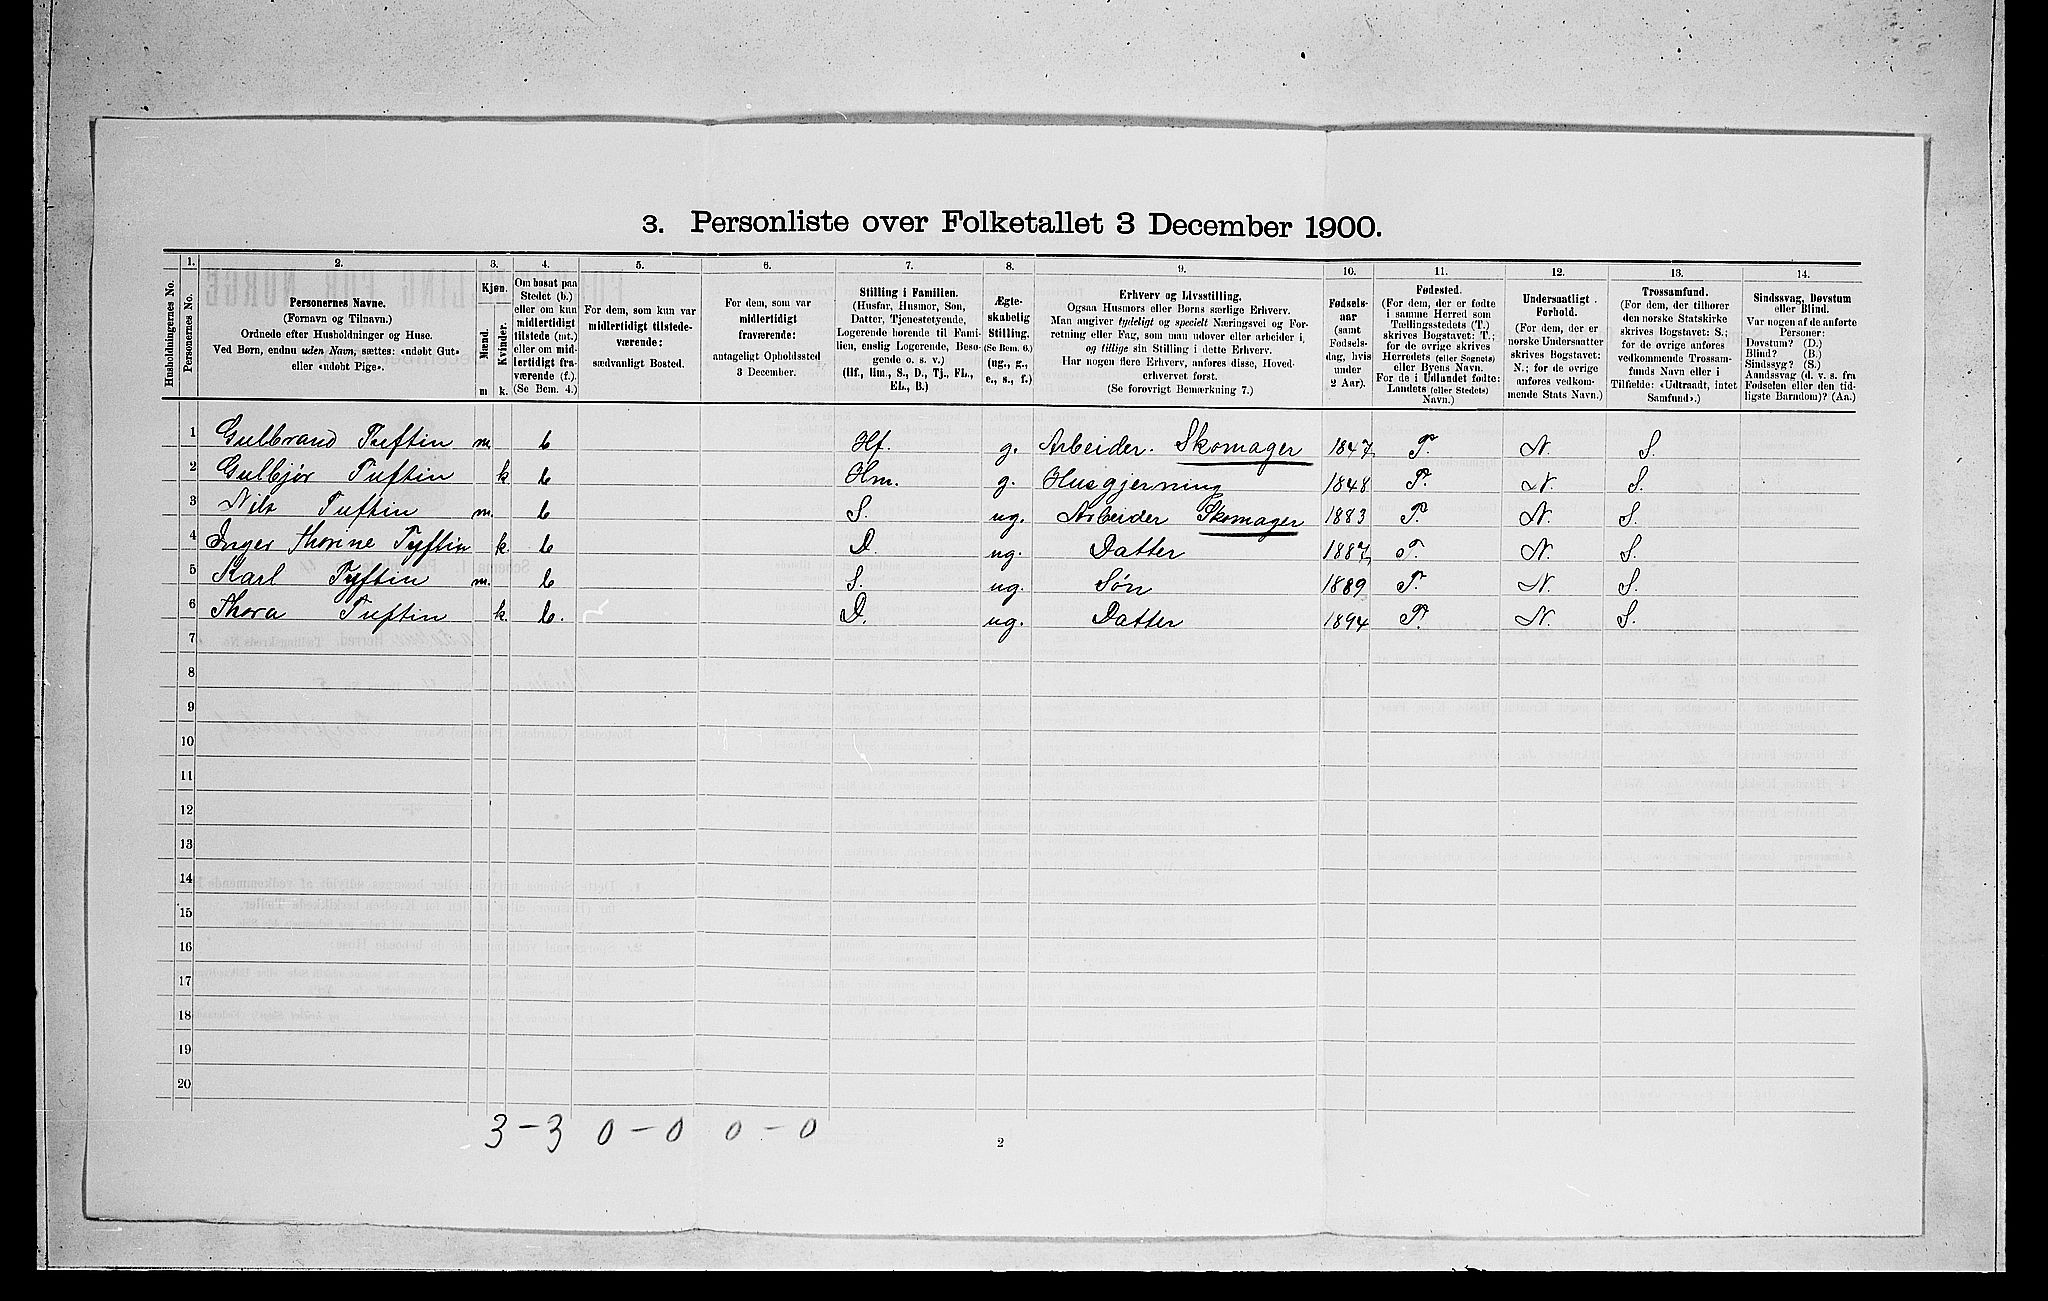 3. Personliste over Folketallet 3 December 1900.
1. 2. 3. 4. 5. 6. 7. 8. 9. 10. 11. 12. 13. 14.
Husholdningernes No.
Personernes No.
Personernes Navne.
(Fornavn og Tilnavn.)
Ordnede efter Husholdninger og Huse.
Ved Børn, endnu uden Navn, sættes: «udøbt Gut»
eller «udøbt Pige».
Kjøn.
Mænd.
Kvinder.
m k.
Om bosat paa
Stedet (b.)
eller om kun
midlertidigt
tilstede (mt.)
eller om mid-
lertidigt fra-
værende (f.).
(Se Bem. 4.)
For dem, som kun var
midlertidigt tilstede-
værende:
sædvanligt Bosted.
For dem, som var
midlertidigt
fraværende:
antageligt Opholdssted
3 December.
Stilling i Familien.
(Husfar, Husmor, Søn,
Datter, Tjenestetyende,
Logerende hørende til Fami-
lien, enslig Logerende, Beso-
gende o. s. v.)
(Hf., Hm., S., D., Tj., FL.,
EL., B.)
Ægte-
skabelig
Stilling.
(Se Bem. 6.)
(ug., g.,
e., s., f.)
Erhverv og Livsstilling.
Ogsaa Husmors eller Børns særlige Erhverv.
Man angiver tydeligt og specielt Næringsvei og For-
retning eller Fag, som man udøver eller arbeider i,
og tillige sin Stilling i dette Erhverv.
Har nogen flere Erhverv, anføres disse, Hoved-
erhvervet først.
(Se forøvrigt Bemærkning 7.)
Fødsels-
aar
(samt
Fødsels-
dag, hvis
under
2 Aar).
Fødested.
(For dem, der er fødte
i samme Herred som
Tællingsstedets (T.)
skrives Bogstavet: T.;
for de øvrige skrives
Herredets (eller Sognets)
eller Byens Navn.
For de i Udlandet fødte:
Landets (eller Stedets)
Navn.)
Undersaatligt
Forhold.
(For dem, der er
norske Undersaatter
skrives Bogstavet:
N.; for de øvrige
anføres vedkom-
mende Stats Navn.)
Trossamfund.
(For dem, der tilhører
den norske Statskirke
skrives Bogstavet: S.;
for de øvrige anføres
vedkommende Trossam-
funds Navn eller i
Tilfælde: «Udtraadt, intet
Samfund».)
Sindssvag, Døvstum
eller Blind.
Var nogen af de anførte
Personer:
Døvstum? (D.)
Blind? (B.)
Sindssyg? (S.)
Aandssvag (d. v. s. fra
Fødselen eller den tid-
ligste Barndom)? (Aa.)
1 Gulbrand Tuftin m. b Hf. g. Arbeider. Skomager 1847 T. N. S.
2 Gulbjør Tuftin k b Hm. g. Husgjerning 1848 T. N. S.
3 Nils Tuftin m. b S. ug. Arbeider Skomager 1883 T. N. S.
4 Inger Thorine Tyftin k. b D. ug. Datter 1887 T. N. S.
5 Karl Tyftin m. b S. ug. Søn 1889 T. N. S.
6 Thora Tuftin k. b. D. ug. Datter 1894 T. N. S.
7
8
9
10
11
12
13
14
15
16
17
18
19
20
3 - 3 0 - 0 0 - 0
2